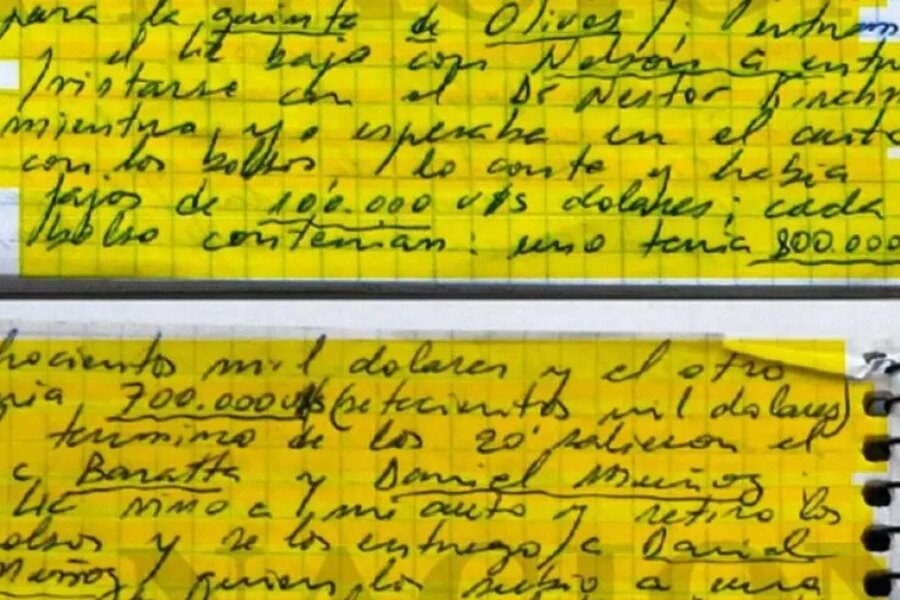 para la quinta de Olivos
el Lic bajo con Nelson a
con el Dr Nestor
mientras yo esperaba en el
con los bolsos, lo conte y habia
fajos de 100.000 u$s dolares; cada
bolso contenian: uno tenia 800.000
mil dolares y el otro
700.000 u$s (setecientos mil dolares)
termino de los 20' salieron el
Baratta y Daniel Muñoz
Lic vino a mi auto y retiro los
y se los entrego a Daniel
Muñoz quien los subio a una
NACION